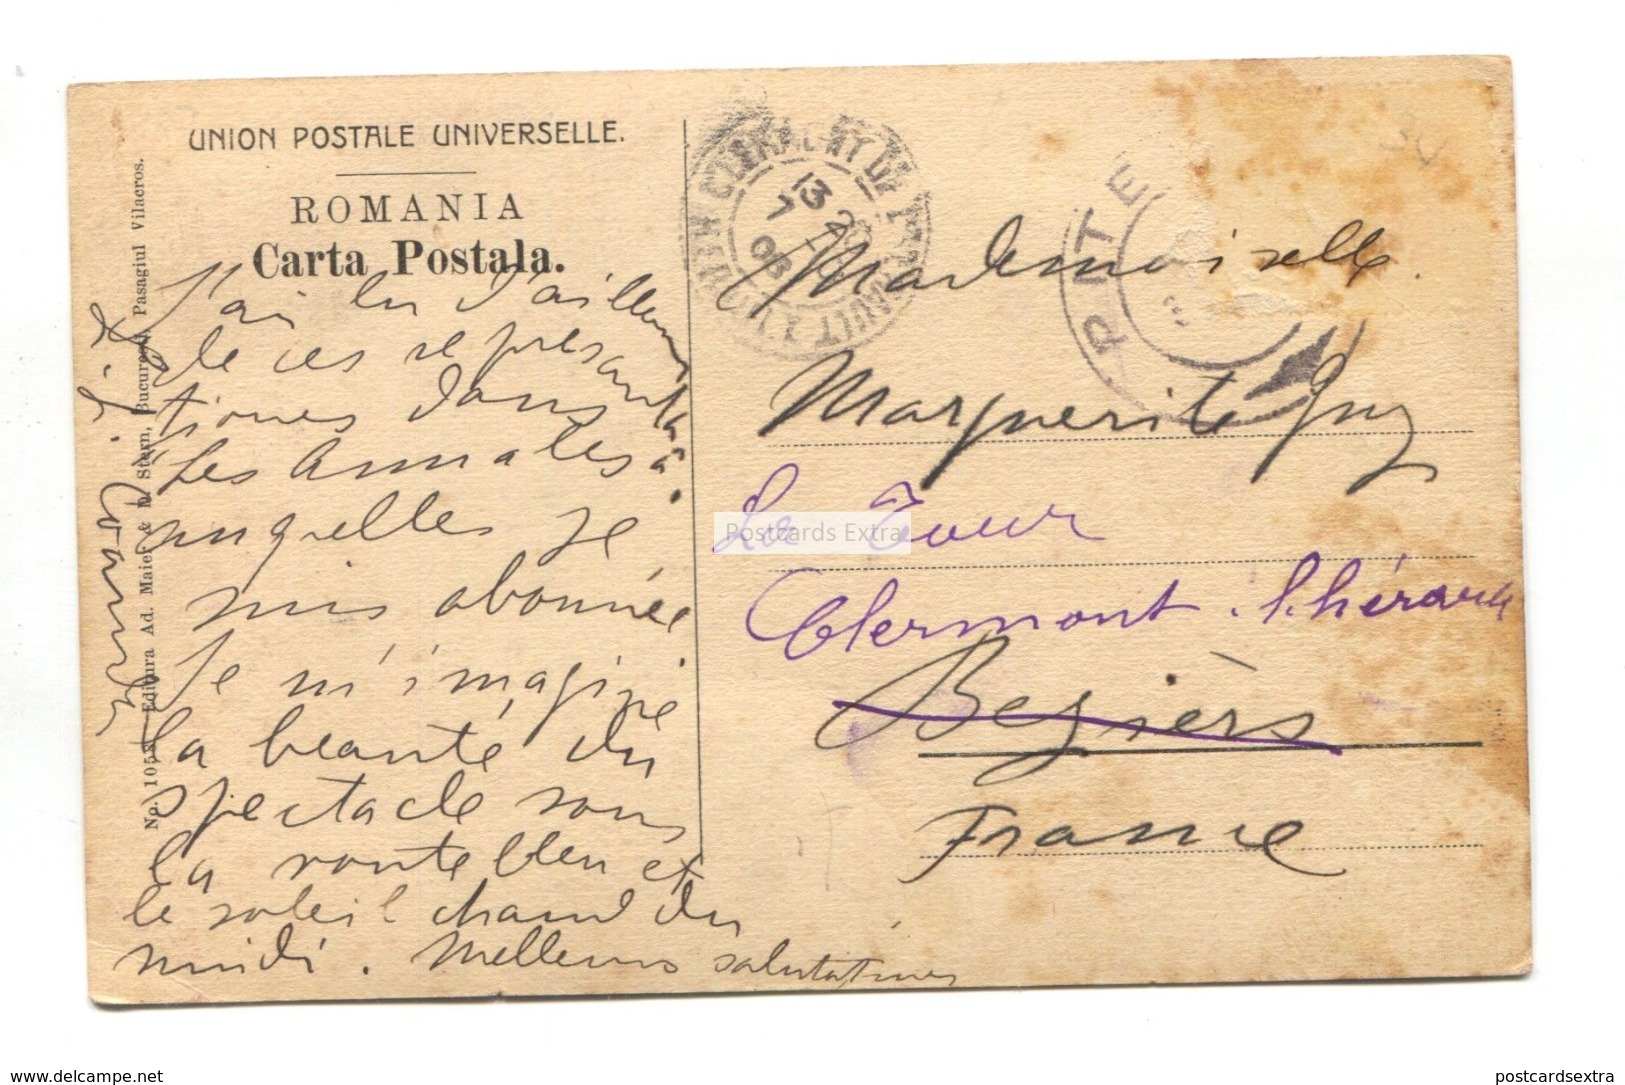 UNION POSTALE UNIVERSELLE.
ROMANIA
Carta Postala.
J'ai lu d'ailleurs
de ces représenta
tions dans
Les Annales à
auxquelles je
suis abonnée
Je m'imagine
la beauté du
spectacle sous
la voute bleu et
le soleil chaud du
midi. Meilleures salutations
No. 105 Editura Ad. Maier & D. Stern, Bucuresti, Pasagiul Vilacros.
CLERMONT DE L'HERAULT
13 20
7
08
PNTE
30
Mademoiselle
Marguerite
La Tour
Clermont. l'hérault
Bezièrs
France
Postcards Extra
www.delcampe.net
postcardsextra